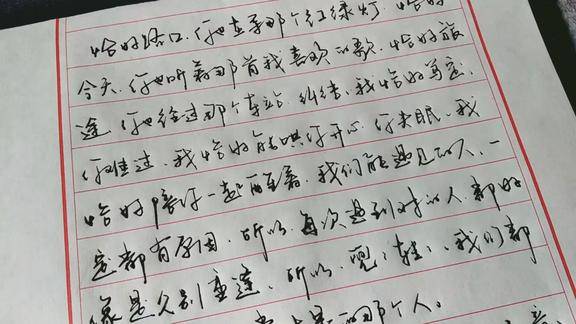 恰好路口，你也在等那个红绿灯，恰好
今天，你也听着那首我喜欢的歌，恰好旅
途，你也经过那个车站，纠结，我恰好笃定，
你难过，我恰好能哄你开心，你失眠，我
恰好陪你一起醒着，我们能遇见的人，一
定都有原因，所以，每次遇到对的人，都好
像是久别重逢，所以，兜兜转转，我们都
那个人。